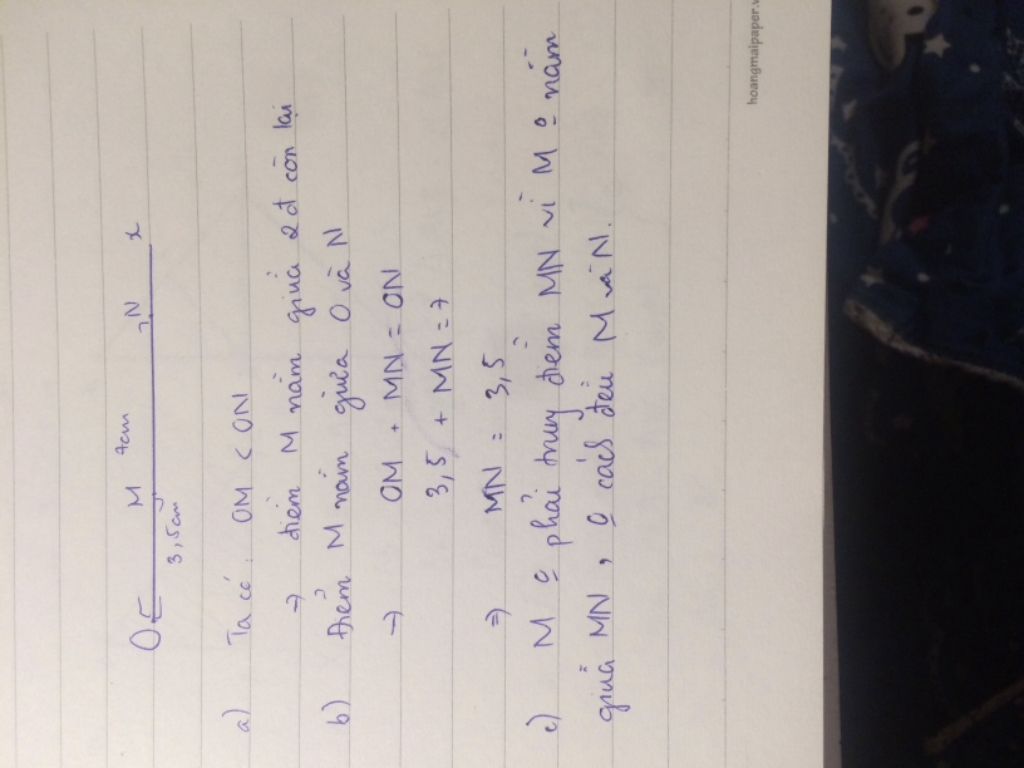 O M N x
7cm
3,5cm
a) Ta có: OM < ON
→ điểm M nằm giữa 2đ còn lại
b) Điểm M nằm giữa O và N
→ OM + MN = ON
3,5 + MN = 7
⇒ MN = 3,5
c) M o phải trung điểm MN vì M o nằm
giữa MN, o cách đều M và N.
hoangmaipaper.v